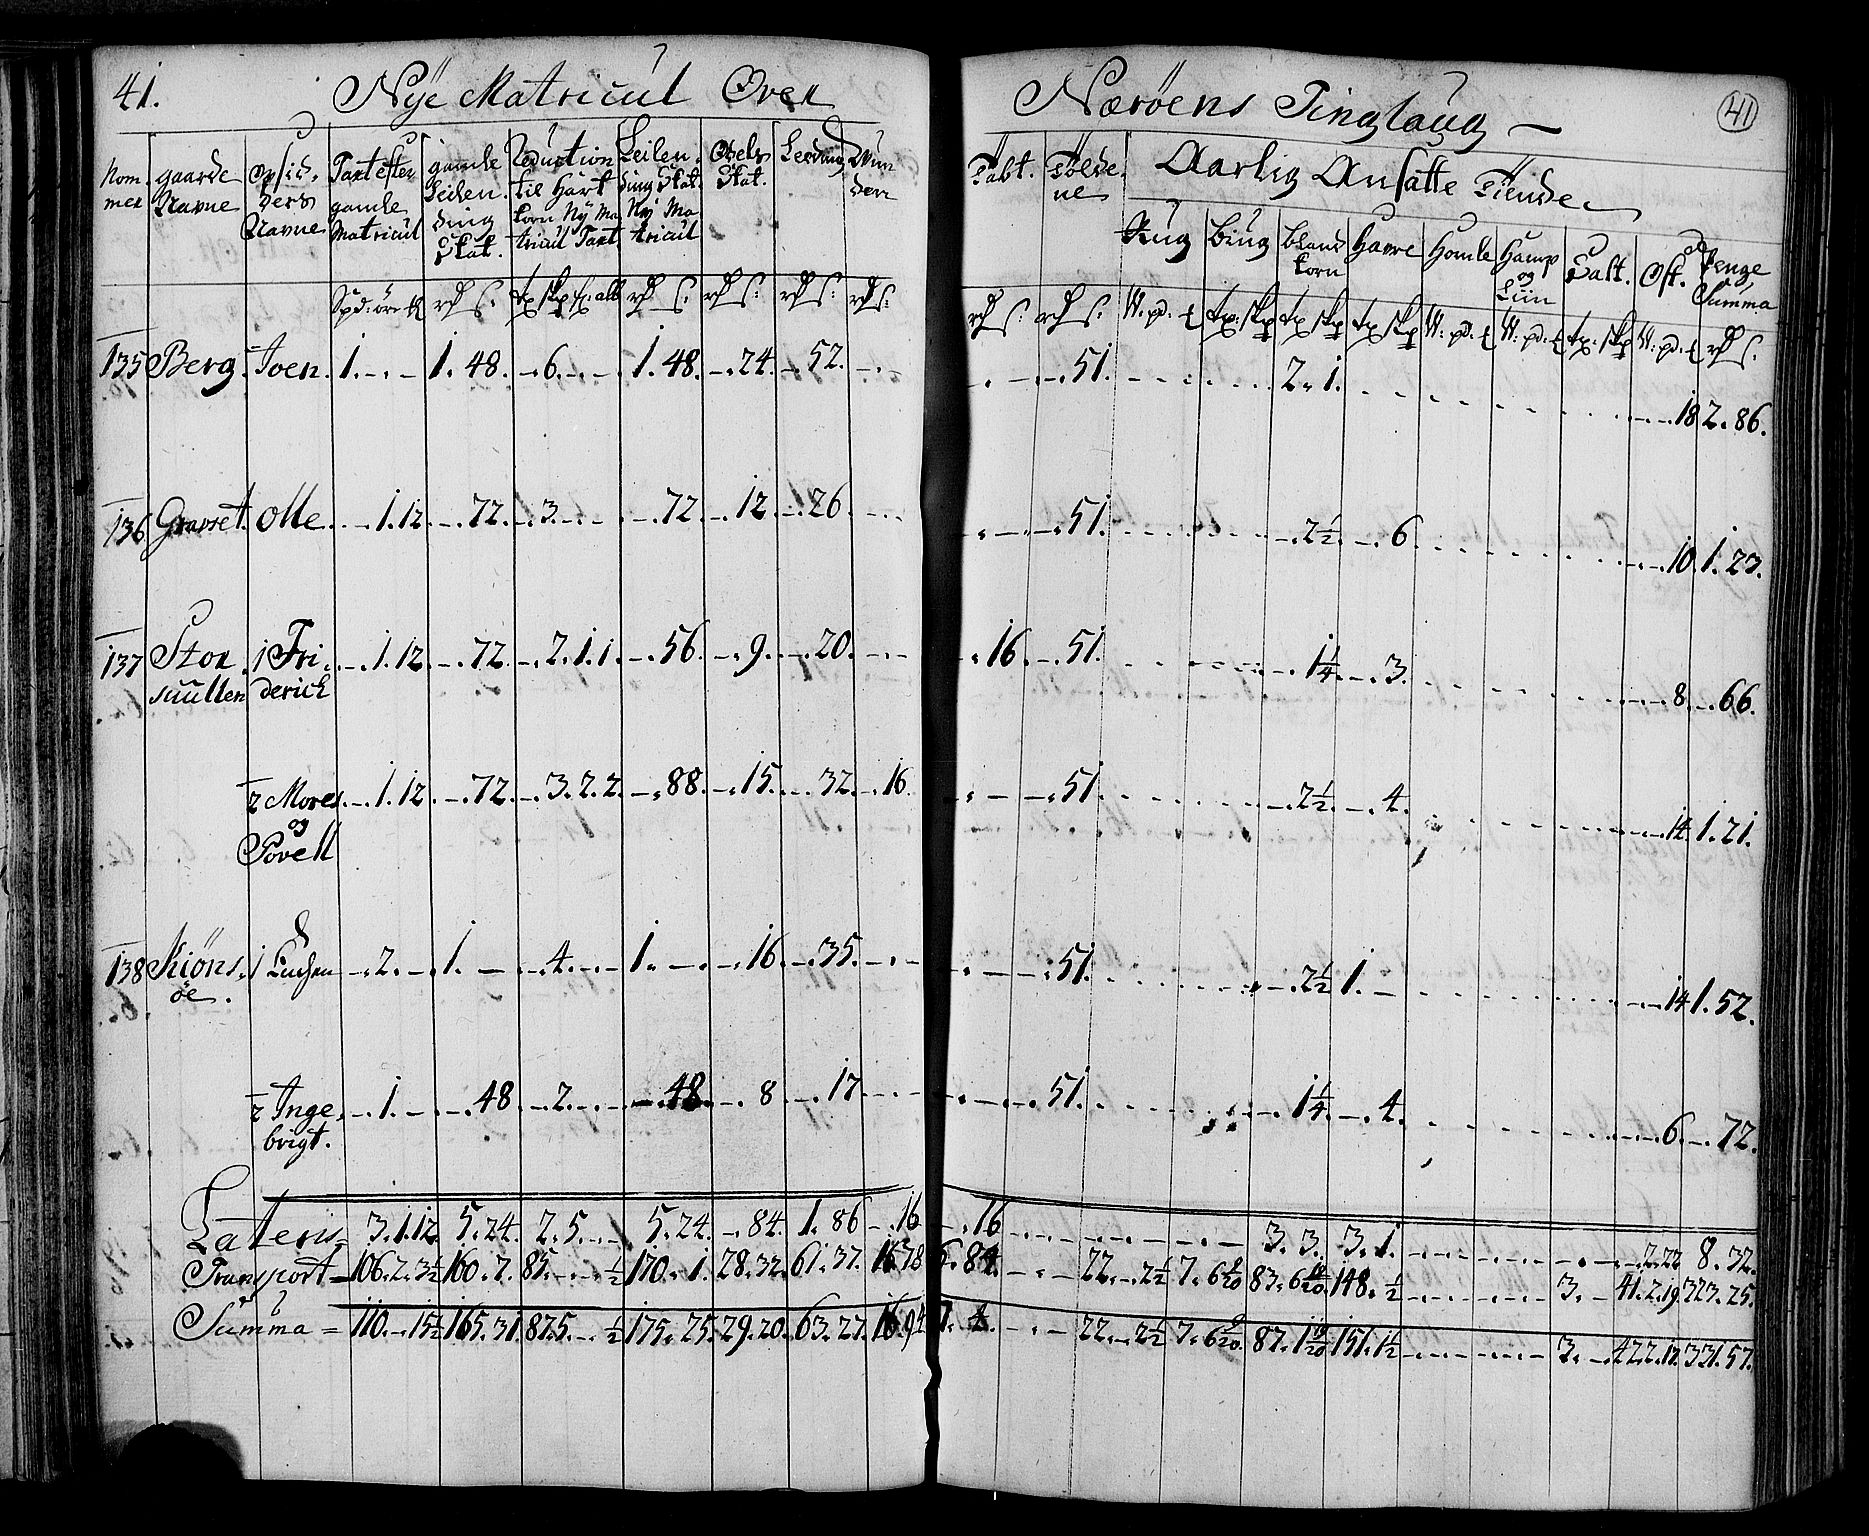 41. Nÿe Matricul Over Nærøens Tinglaug 41
Nommer gaarde Navne Opsidders Navne Taxt efter gamle Matricul gamle Leilending Skat. Reduction til Hartkorn Nÿ Matricul Taxt Leilending Skat. Nÿ Matricul Odels Skat. Leeding Vunden Tabt. Følge ne Aarlig Ansatte Tiende
Rug Biug blandkorn Havre Homle Hamp og Liin Salt. Ost. Penge Summa
135 Berg. Joen. 1. - - 1. 48. - 6. - - 1. 48. - . 24. - 52. - . - . - - . 51. 2. 1. - . - . 18 2. 86.
136 Gravset. Olle. - . 1. 12. - . 72. - 3. - - - . 72. - . 12. - . 26. - . - . - - . 51. - . 2½. - . 6. - . - . 10. 1. 23.
137 Storsuullen 1 Friderich - . 1. 12. - . 72. - . 2. 1. 1. - . 56. - . 9. - . 20. - - - . 16. - . 51. - . 1¼. - . 3. - . - . 8. - . 66.
2 Mores og Povell - . 1. 12. - . 72. - . 3. 2. 2. - . 88. - . 15. - . 32. - . 16. - . - - . 51. - . 2½. - . 4. - . - . 14. 1. 21.
138 Kiönsöe. 1 - . 2. - 1. - - . 4. - - 1. - . - . 16. - . 35. - . - . - - . 51. - . 2½ 1. - - . - . 14. 1. 52.
2 Ingebrigt. - . 1. - - . 48. - . 2. - - - . 48. - . 8. - . 17. - - - . - - . 51. - . 1¼. - . 4. - . - . 6. - . 72.
Lateris = 3. 1. 12. 5. 24. 2. 5. - - 5. 24. - . 84. 1. 86. - . 16 - . 16 3. 3. 3. 1. - . 2. 22 8. 32.
Transport = 106. 2. 3½ 160. 7. 85. - - ½ 170. 1. 28. 32. 61. 37. 16 78 6. 84. - . - 22. - . 2½ 7. 83. 148. ½ 3. - 41. 2. 19. 323. 25.
Summa = 110. - 15½ 165. 31. 87. 5. - ½ 175. 25. 29. 20. 63. 27. 16. 94 7. 4. - . - 22. - . 2½ 7. 87. 151. 1½ 3. - 42. 2. 17. 331. 57.